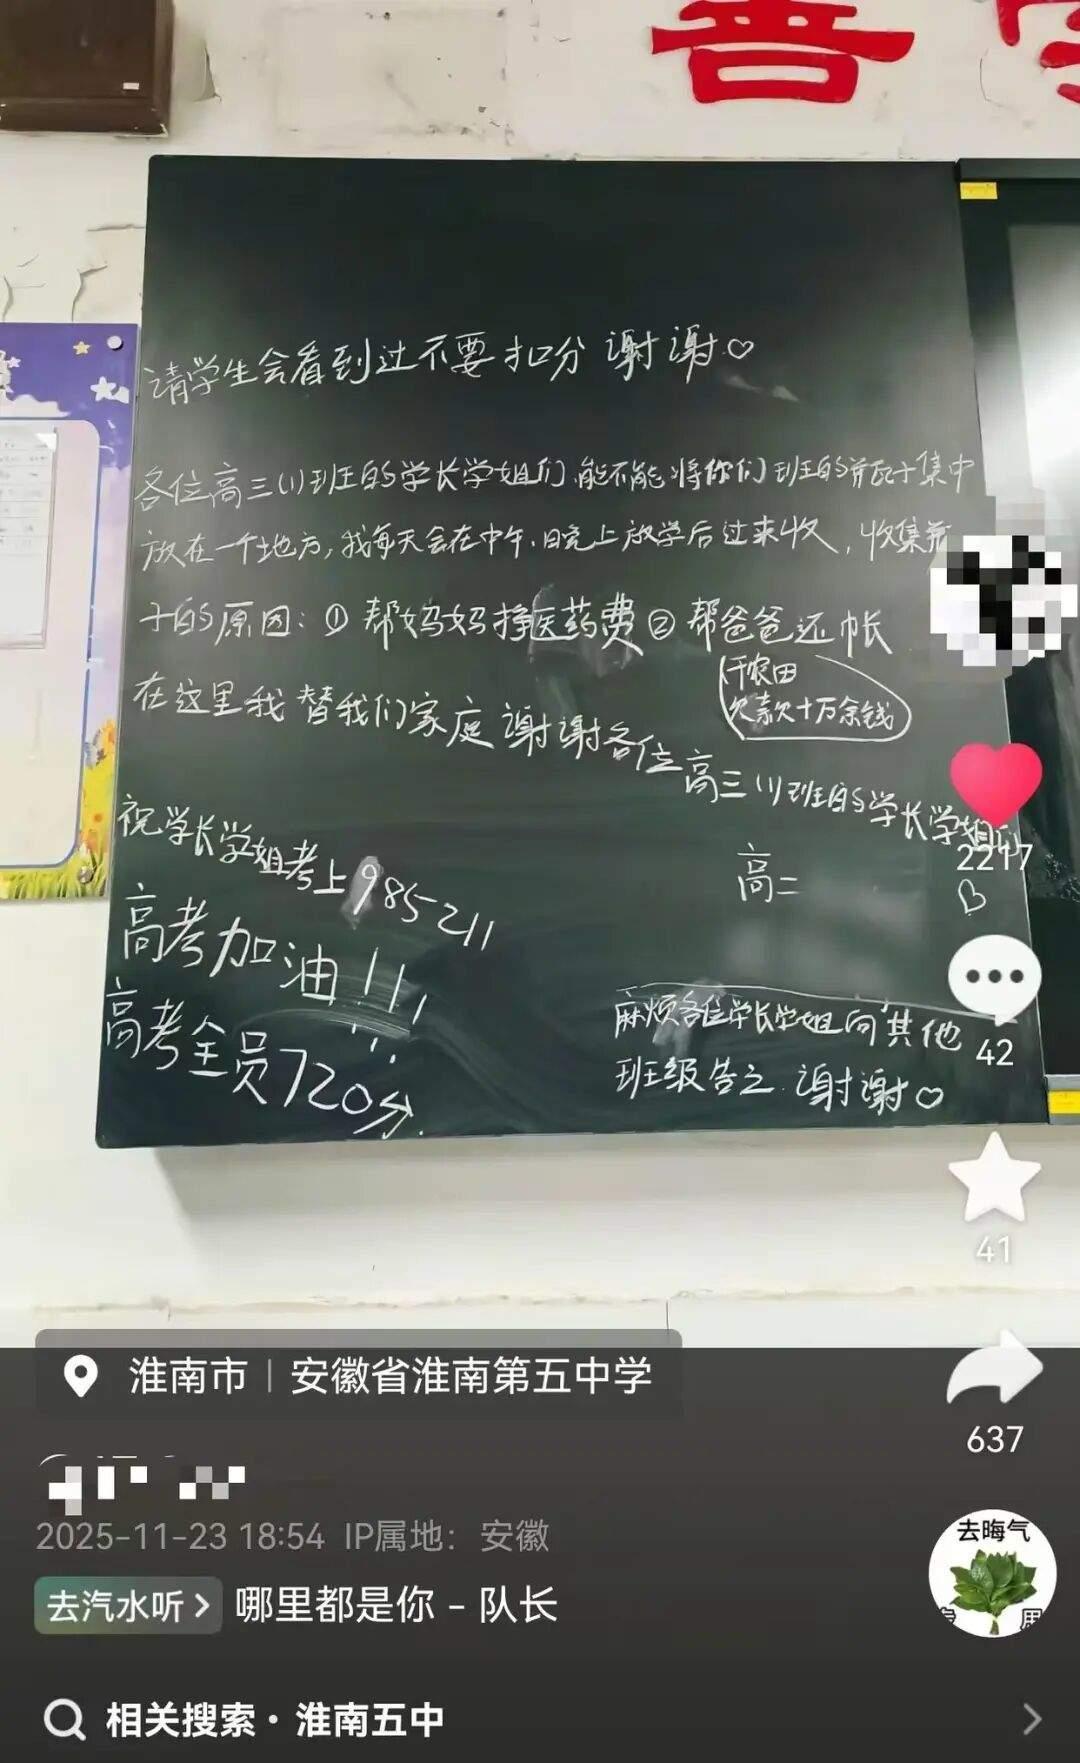 请学生会看到过不要扣分 谢谢♡
各位高三(1)班的学长学姐们,能不能将你们班的瓶子集中
放在一个地方,我每天会在中午、晚上放学后过来收,收集瓶
子的原因:①帮妈妈挣医药费②帮爸爸还帐
(干农田
欠款十万余钱)
在这里我替我们家庭谢谢各位高三(1)班的学长学姐们
祝学长学姐考上985211
高二
高考加油!!!
高考全员720分.
麻烦各位学长学姐向其他
班级告之.谢谢♡
2217
42
41
637
淮南市|安徽省淮南第五中学
2025-11-23 18:54 IP属地:安徽
去汽水听 > 哪里都是你 - 队长
去晦气
相关搜索·淮南五中